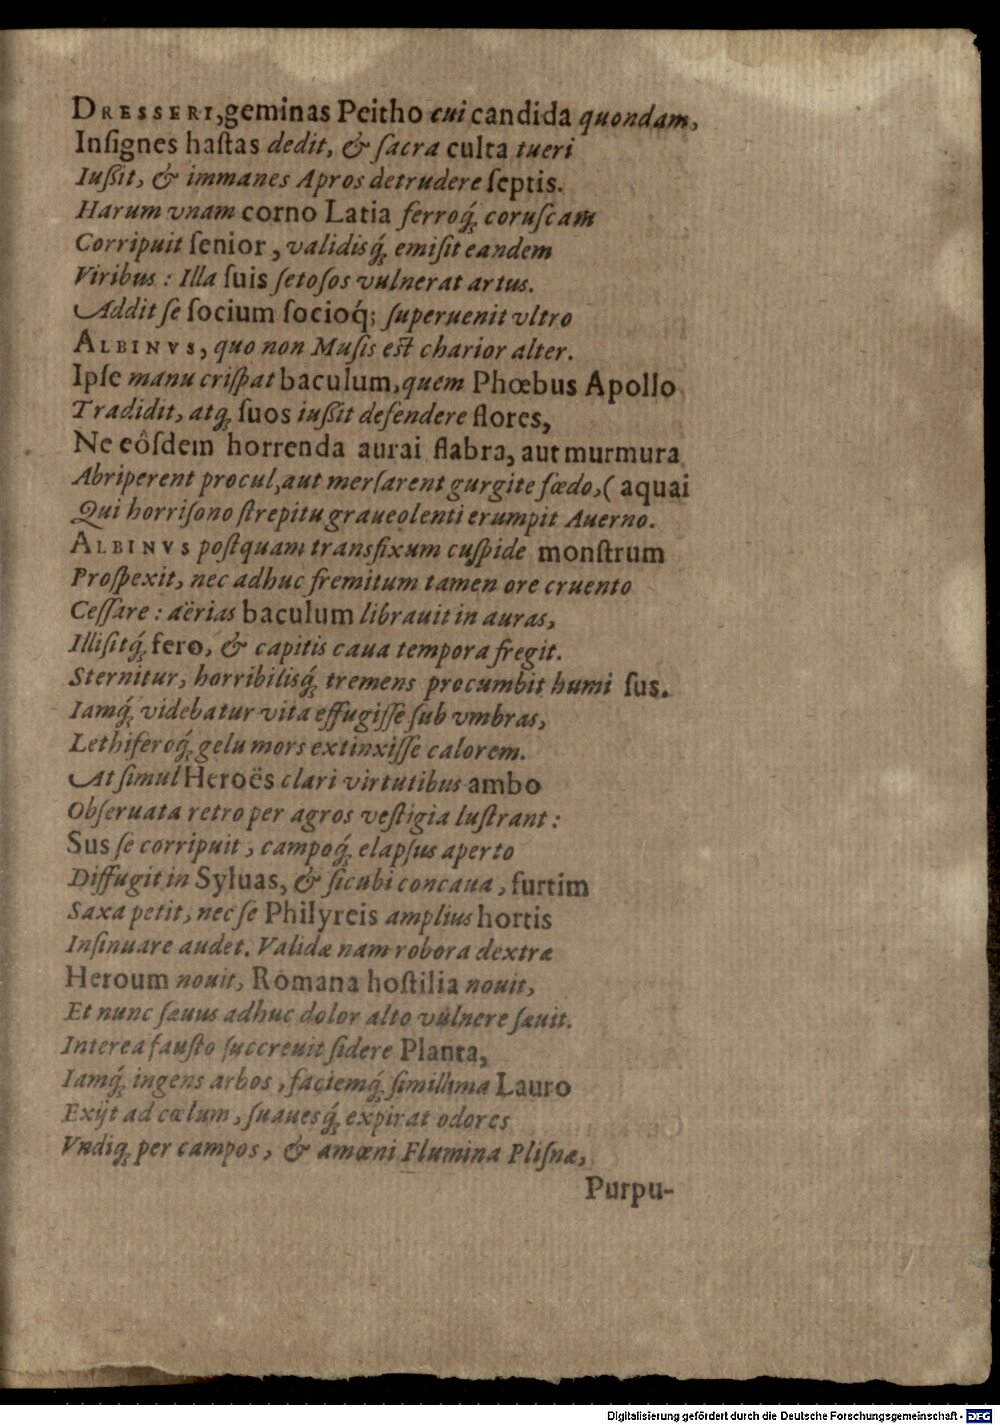 DRESSERI, geminas Peitho cui candida quondam,
Inſignes haſtas dedit, & ſacra culta tueri
Iußit, & immanes Apros detrudere ſeptis.
Harum vnam corno Latia ferroq́; coruſcam
Corripuit ſenior, validisq́; emiſit eandem
Viribus: Illa ſuis ſetoſos vulnerat artus.
Addit ſe ſocium ſocioq́; ſuperuenit vltro
ALBINVS, quo non Muſis eſt charior alter.
Ipſe manu criſpat baculum, quem Phœbus Apollo
Tradidit, atq; ſuos iußit defendere flores,
Ne eôſdem horrenda aurai flabra, aut murmura
Abriperent procul, aut merſarent gurgite fœdo, (aquai
Qui horriſono ſtrepitu graueolenti erumpit Auerno.
ALBINVS poſtquam transfixum cuſpide monſtrum
Proſpexit, nec adhuc fremitum tamen ore cruento
Ceſſare: aërias baculum librauit in auras,
Illiſitq́; fero, & capitis caua tempora fregit.
Sternitur, horribilisq́; tremens procumbit humi ſus.
Iamq́; videbatur vita effugiſſe ſub vmbras,
Lethiferoq́; gelu mors extinxiſſe calorem.
At ſimul Heroës clari virtutibus ambo
Obſeruata retro per agros veſtigia luſtrant:
Sus ſe corripuit, campoq́; elapſus aperto
Diffugit in Syluas, & ſicubi concaua, furtim
Saxa petit, nec ſe Philyreis amplius hortis
Inſinuare audet. Validæ nam robora dextræ
Heroum nouit, Romana hoſtilia nouit,
Et nunc ſæuus adhuc dolor alto vulnere ſæuit.
Interea fauſto ſuccreuit ſidere Planta,
Iamq́; ingens arbos, faciemq́; ſimillima Lauro
Exijt ad cœlum, ſuauesq́; expirat odores
Vndiq; per campos, & amœni Flumina Pliſnæ,
Purpu-
Digitalisierung gefördert durch die Deutsche Forschungsgemeinschaft - DFG